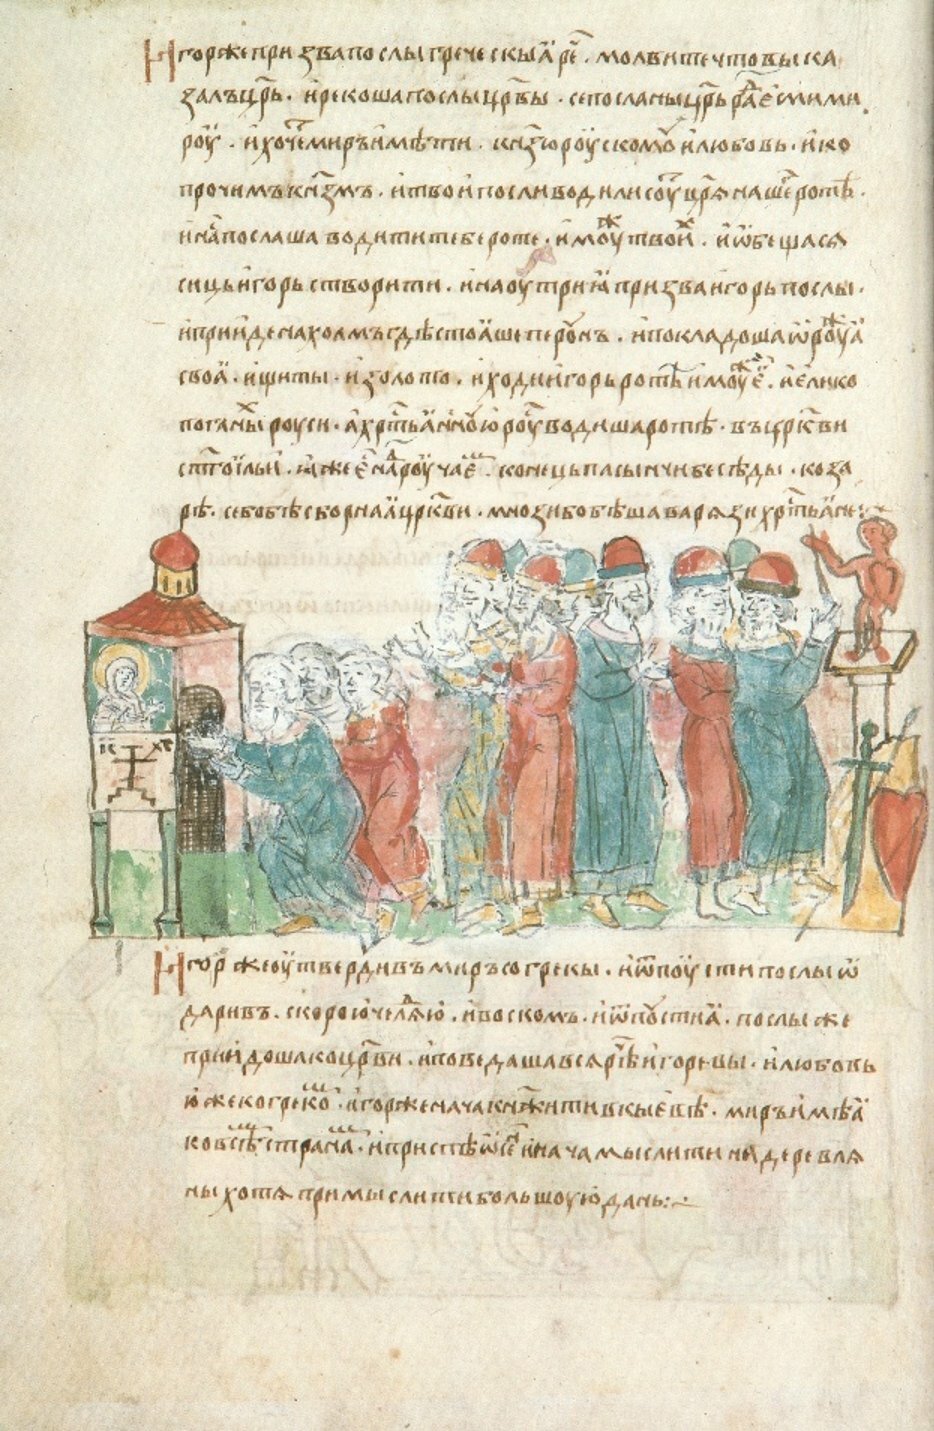 Игорже призва послы греческыꙗ реⷱ҇ . молвите что вы ка
залъ цр҃ь . и рекоша послы цр҃вы . се посла ны цр҃ь радъ есмь ми
роу . и хощеть миръ имѣти . кнѧзю роускомоу и любовь . и ко
прочимъ кнѧзмъ . и твои посли водили соуть цр҃ѧ наше ротѣ .
и насъ послаша водити тебе роте . и моужъ твоиⷯ . и ѡбещасѧ
сице игорь створити . и наоутриꙗ призва игорь послы .
и прииде на холмъ где стоꙗше пероунъ . и покладоша ѡроужьꙗ
своꙗ . и щиты . и золото . и ходи игорь ротѣ и моужи еⷢ҇ . и елико
поганыⷯ роуси . а хрⷭ҇тьꙗноую роусь водиша ротѣ . въ цр҃кви
ст҃го ильи . ꙗже еⷭ҇ надъ роучаемъ . конець пасынчи беседы . коза
рѣ . се бо бѣ сборнаꙗ цр҃кви . мнози бо бѣша варѧзи хрⷭ҇тьꙗне :
ІС ХС
Игорь же оутвердивъ миръ со грекы . и ѿпоусти послы ѡ
даривъ . скорою и челѧдью . и воскомъ . и ѿпоусти ꙗ . послы же
приидоша ко цр҃ви . и поведаша всѧ рѣчи игоревы . и любовь
юже ко грекомъ . игорже нача кнѧжити в кыевѣ . миръ имѣꙗ
ко всѣмъ странамъ . и приспѣ ѡсень и нача мыслити на деревлѧ
ны хотѧ примыслити большоую дань :